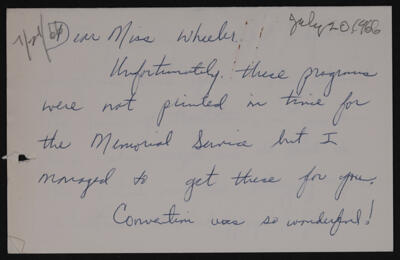 July 20, 1966
Dear Miss Wheeler
Unfortunately these programs
were not printed in time for
the Memorial Service but I
managed to get these for you.
Convention was so wonderful!